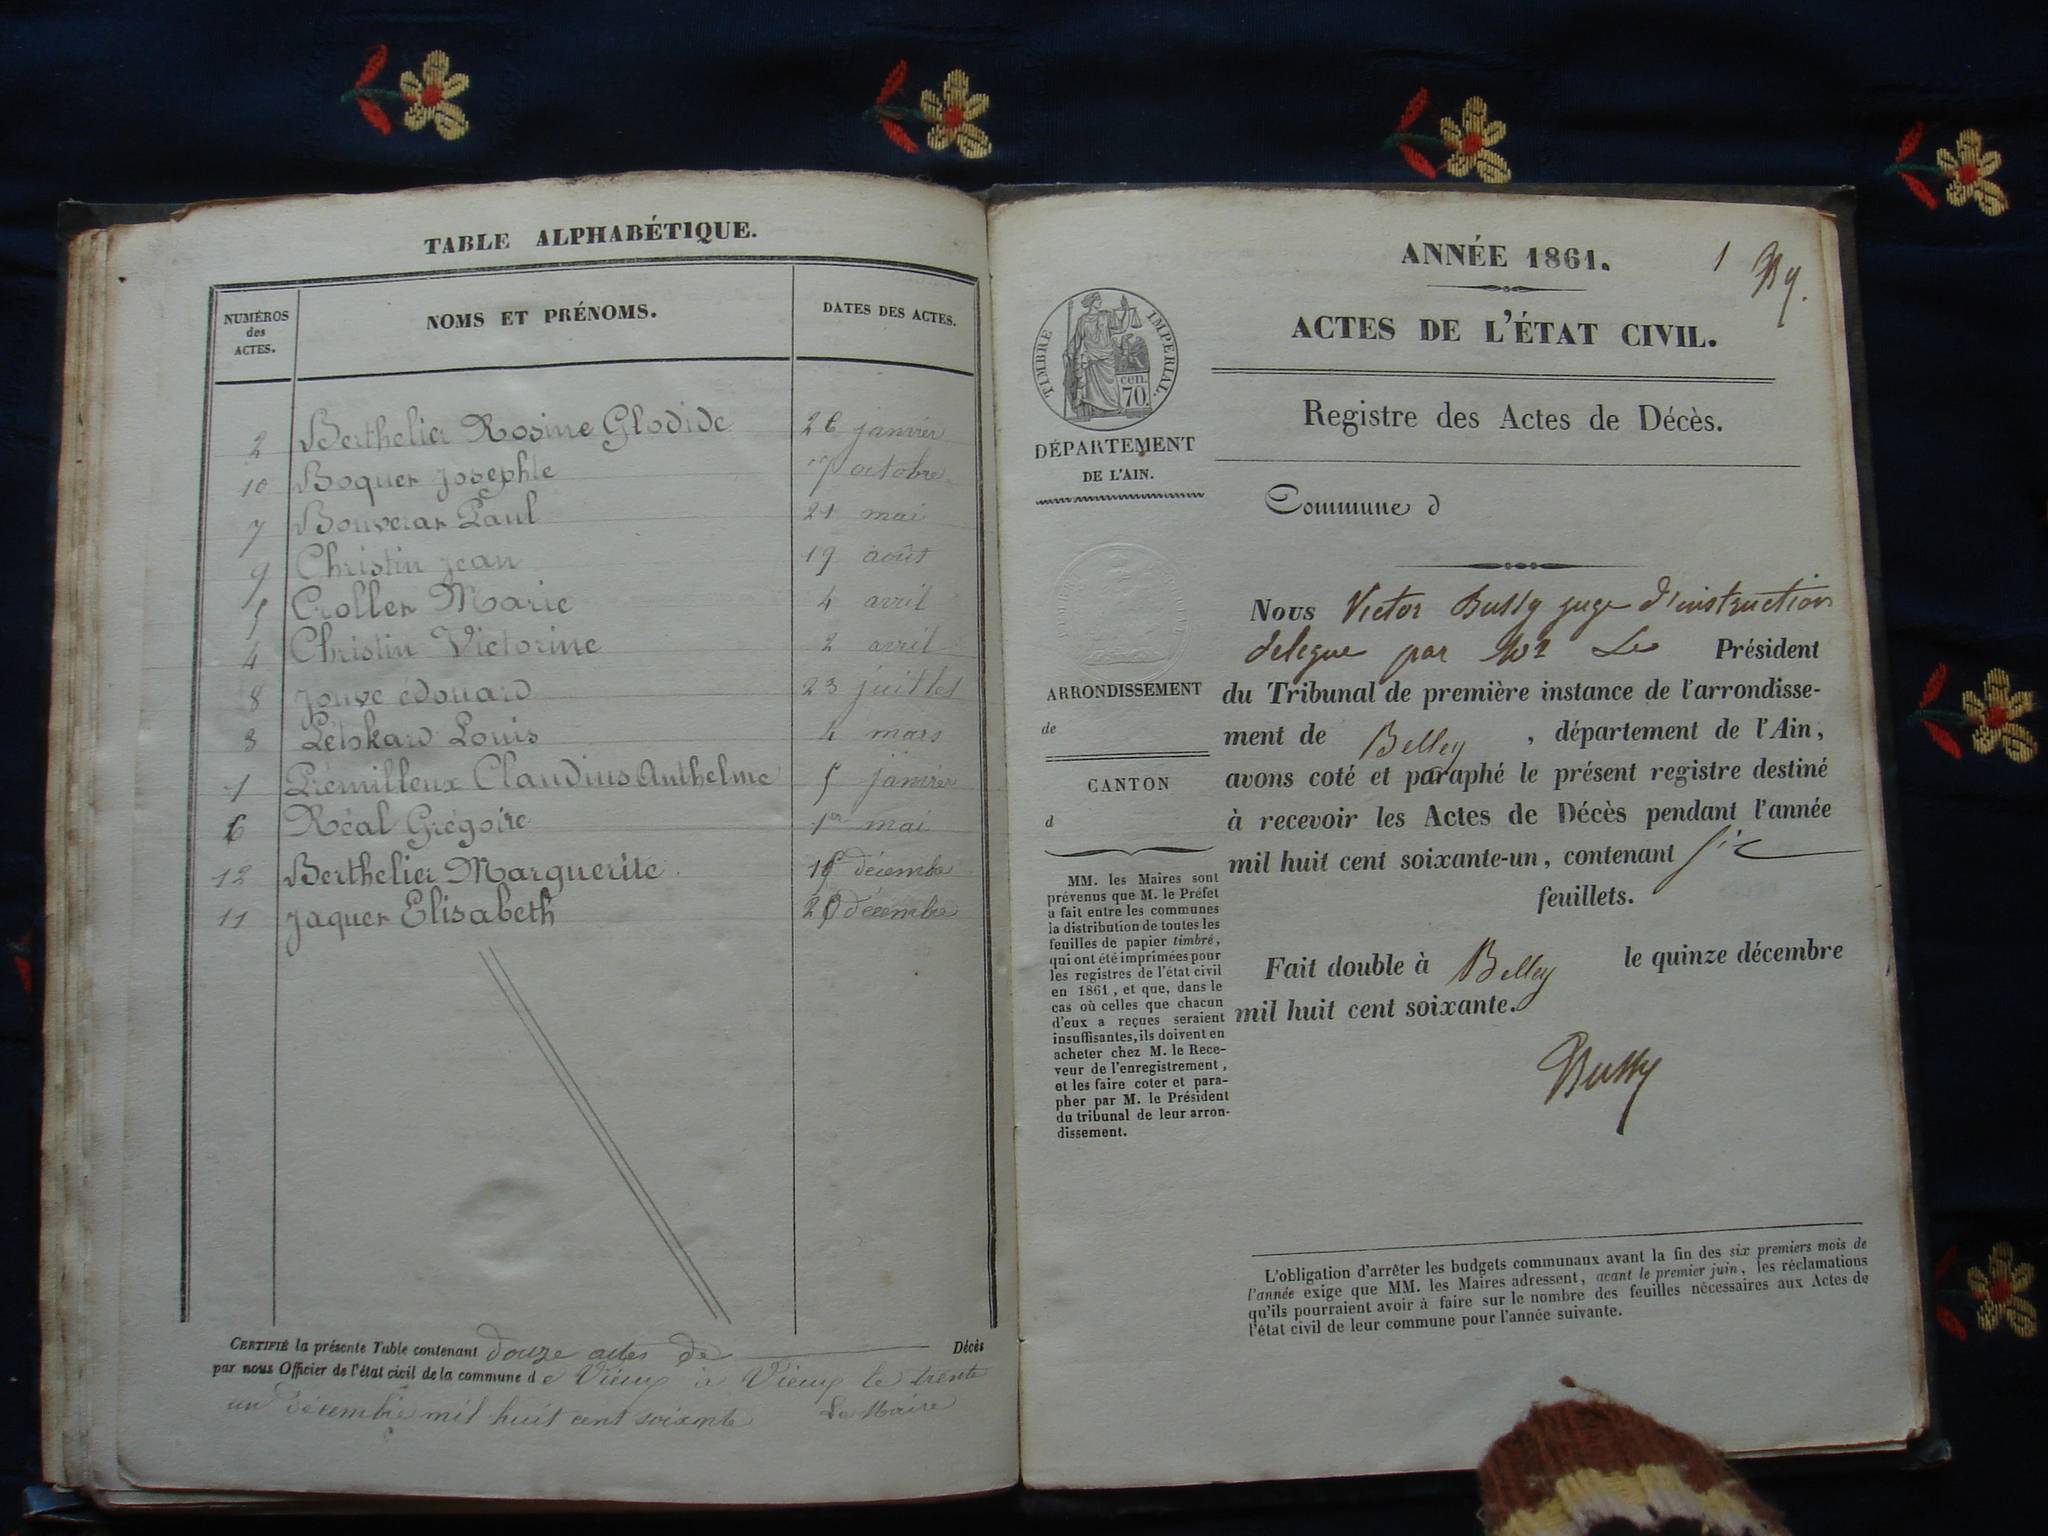 TABLE ALPHABÉTIQUE.
NUMÉROS
des
ACTES.
NOMS ET PRÉNOMS.
DATES DES ACTES.
2 Berthelier Rosine Glodide 26 janvier
10 Boquer Josephte 17 octobre
7 Bouverat Paul 21 mai
9 Christin Jean 19 août
5 Croller Marie 4 avril
4 Christin Victorine 2 avril
8 Jouve édouard 23 juillet
3 Louis 4 mars
1 Prémilleux Claudius Anthelme 5 janvier
6 Réal Grégoire 1er mai
12 Berthelier Marguerite décembre
11 Jaquer Elisabeth décembre
CERTIFIÉ la présente Table contenant douze actes de Décès
par nous Officier de l'état civil de la commune de Vieux à Vieux le trente
un décembre mil huit cent soixante Le Maire
ANNÉE 1861.
1 By.
ACTES DE L'ÉTAT CIVIL.
Registre des Actes de Décès.
TIMBRE IMPÉRIAL.
cen.
70.
DÉPARTEMENT
DE L'AIN.
Commune d
ARRONDISSEMENT
de
CANTON
d
MM. les Maires sont
prévenus que M. le Préfet
a fait entre les communes
la distribution de toutes les
feuilles de papier timbré,
qui ont été imprimées pour
les registres de l'état civil
en 1861, et que, dans le
cas où celles que chacun
d'eux a reçues seraient
insuffisantes, ils doivent en
acheter chez M. le Rece-
veur de l'enregistrement,
et les faire coter et para-
pher par M. le Président
du tribunal de leur arron-
dissement.
Nous Victor Bussy juge d'instruction
delegue par Mr Le Président
du Tribunal de première instance de l'arrondisse-
ment de Belley, département de l'Ain,
avons coté et paraphé le présent registre destiné
à recevoir les Actes de Décès pendant l'année
mil huit cent soixante-un, contenant six
feuillets.
Fait double à Belley le quinze décembre
mil huit cent soixante.
Bussy
L'obligation d'arrêter les budgets communaux avant la fin des six premiers mois de
l'année exige que MM. les Maires adressent, avant le premier juin, les réclamations
qu'ils pourraient avoir à faire sur le nombre des feuilles nécessaires aux Actes de
l'état civil de leur commune pour l'année suivante.